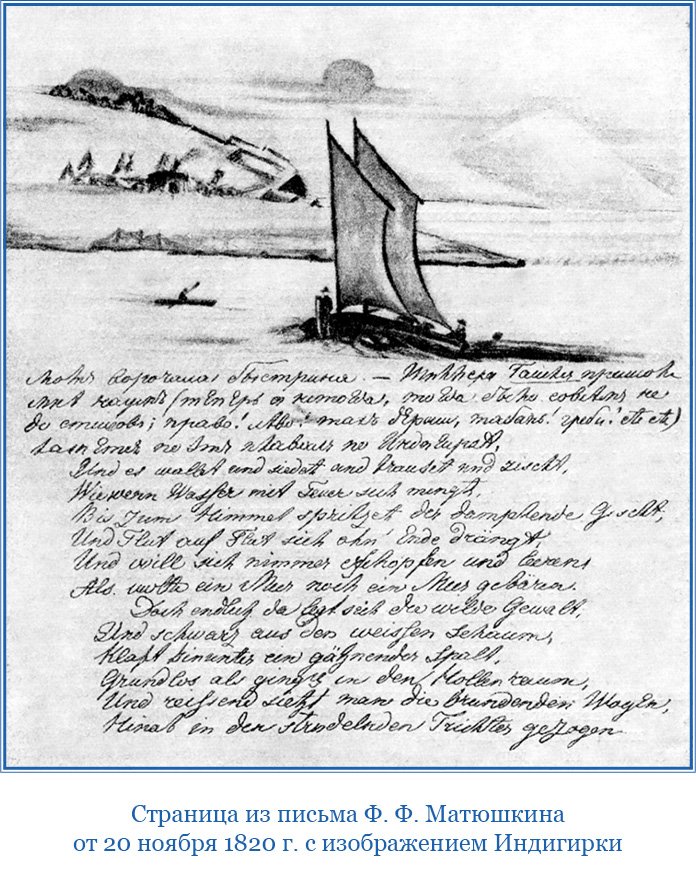 лютъ ворочала быстрина. —
мнѣ (теперь а не тогда, тогда было совсѣмъ не
до стиховъ; право! лѣво! такъ держи, табань! греби!
по Индигиркѣ,
Und es wallet und siedet und brauset und zischt,
Wie wenn Wasser mit Feuer sich mengt,
Bis zum Himmel spritzet der dampfende Gischt,
Und Flut auf Flut sich ohn' Ende drängt
Und will sich nimmer erschöpfen und leeren,
Als wollte ein Meer noch ein Meer gebären.
Doch endlich da legt sich die wilde Gewalt,
Und schwarz aus dem weissen Schaum,
Klaft hinunter ein gähnender Spalt,
Grundlos als ging's in den Höllenraum,
Und reissend sieht man die brandenden Wogen,
Hinab in den strudelnden Trichter gezogen
Страница из письма Ф. Ф. Матюшкина
от 20 ноября 1820 г. с изображением Индигирки